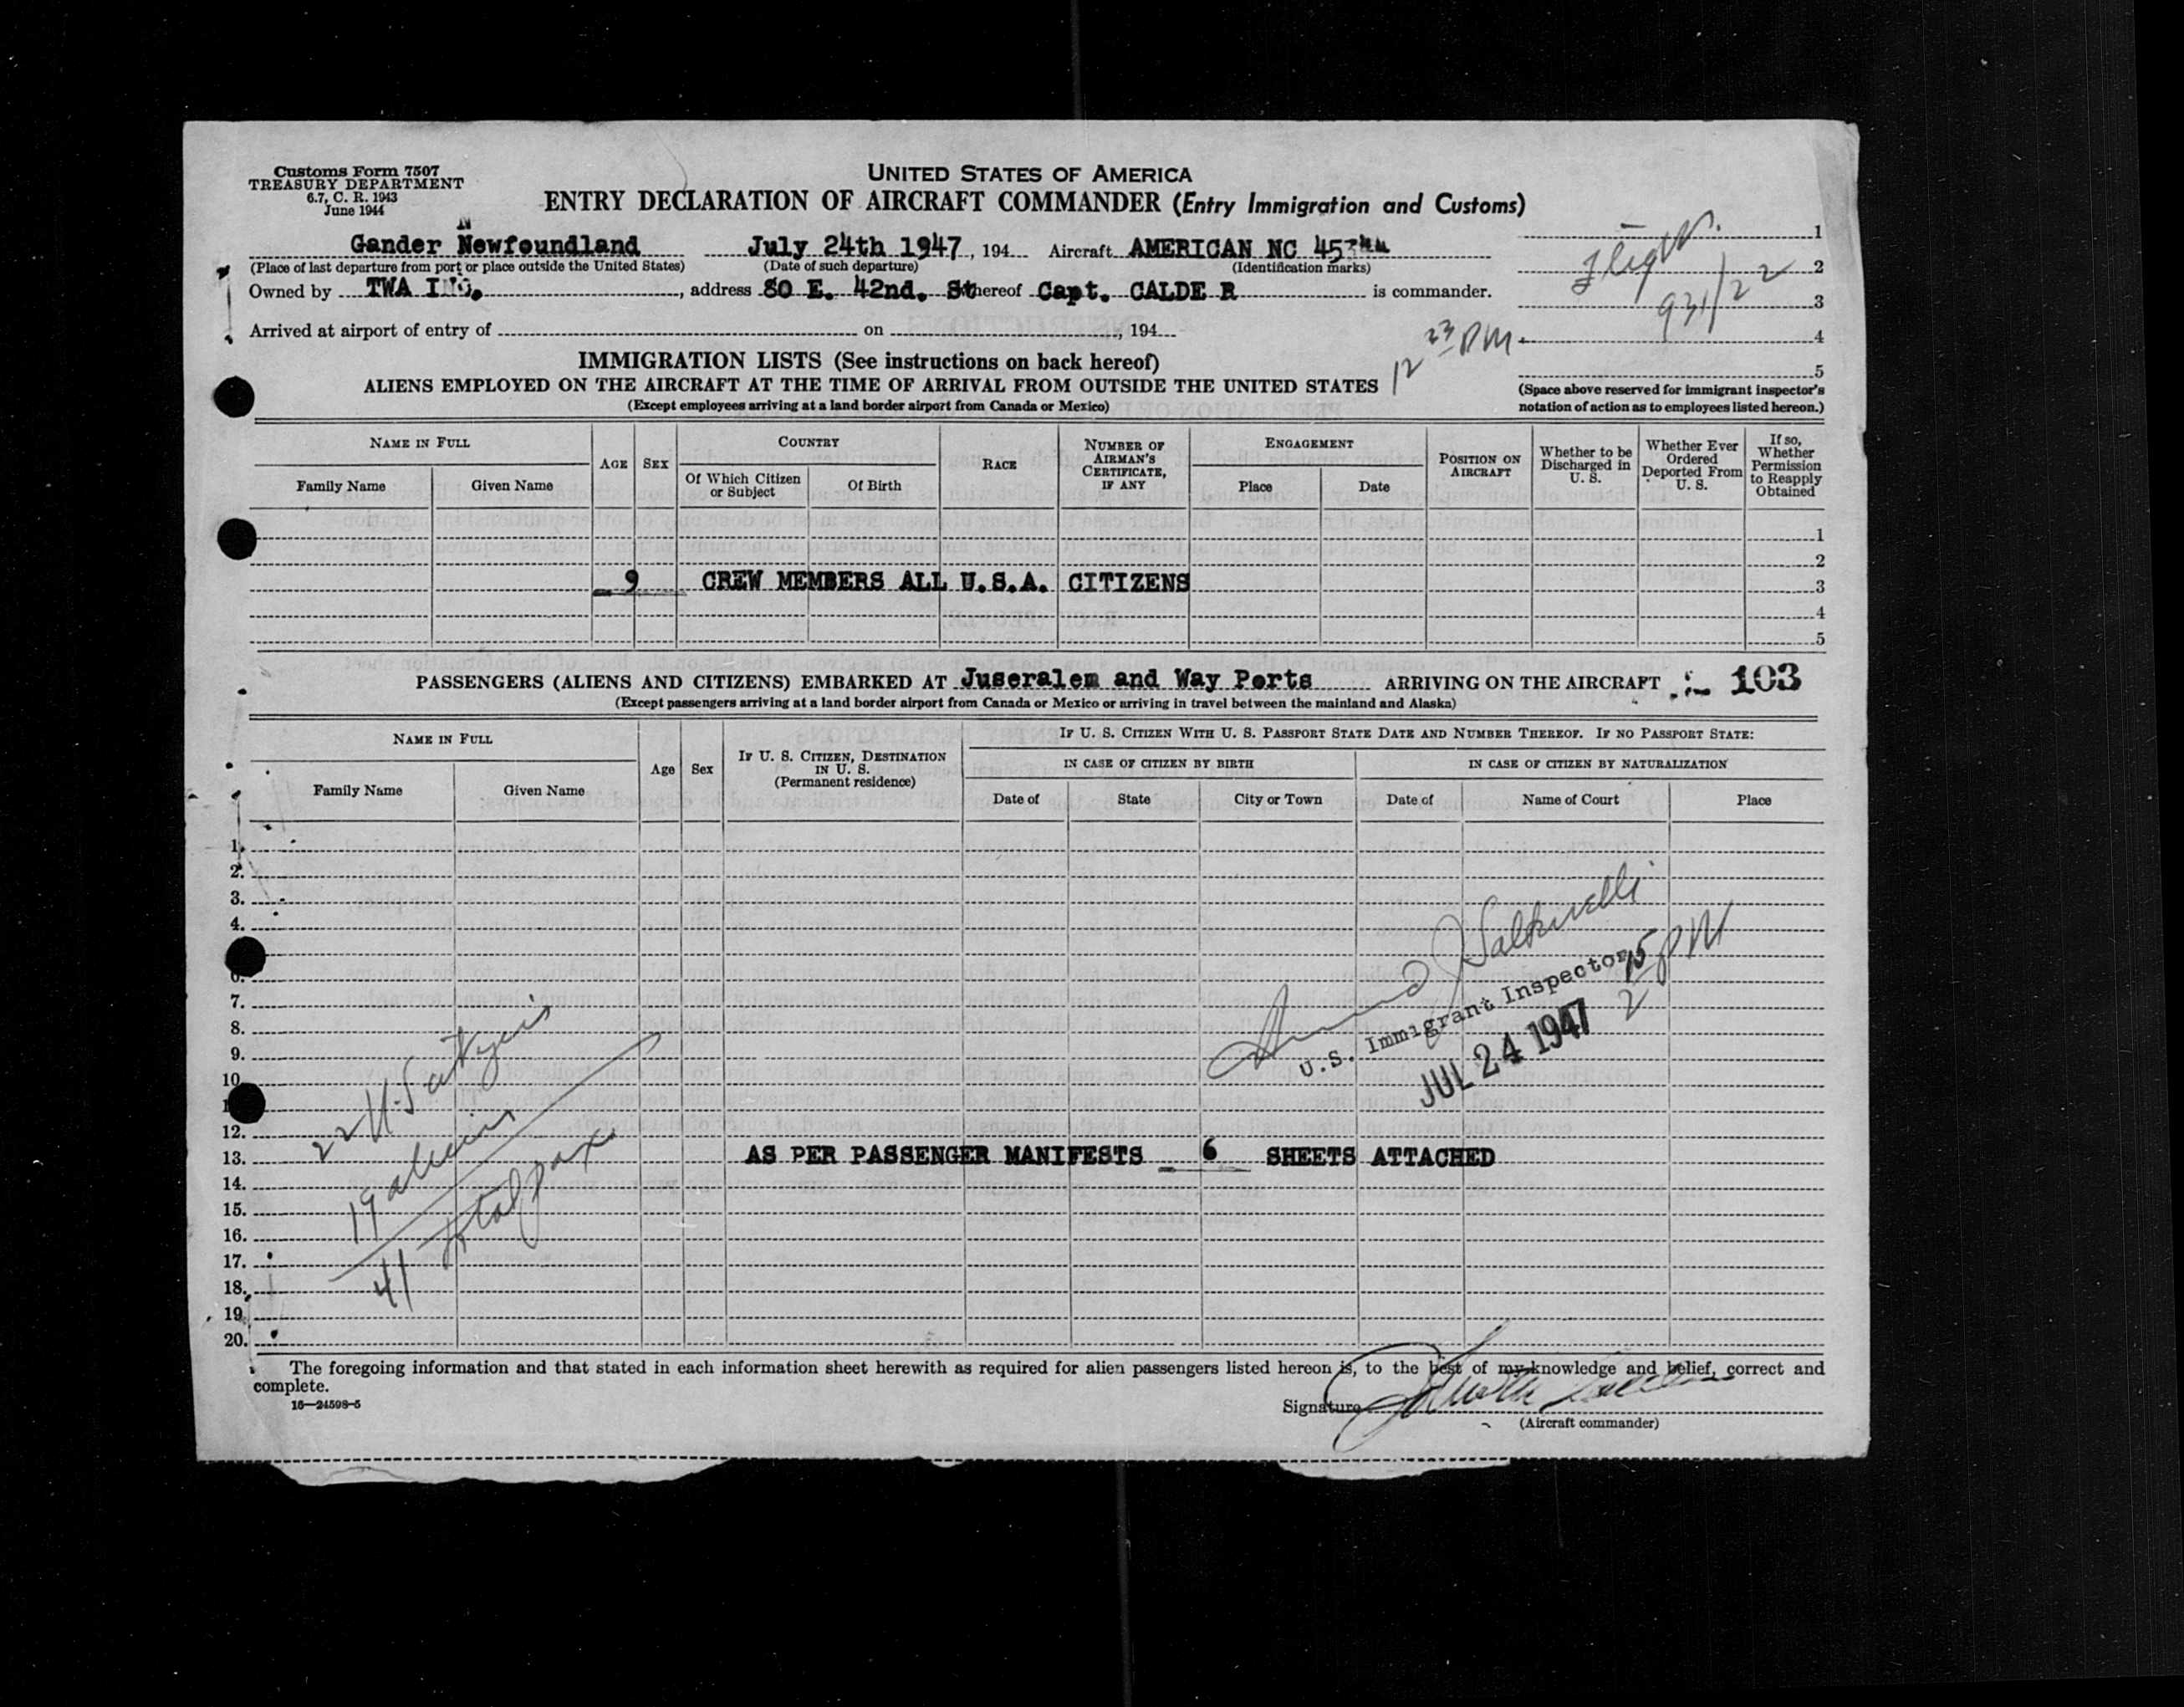 Customs Form 7507
TREASURY DEPARTMENT
6.7, C. R. 1943
June 1944
UNITED STATES OF AMERICA
ENTRY DECLARATION OF AIRCRAFT COMMANDER (Entry Immigration and Customs)
Gander Newfoundland July 24th 1947, 194 Aircraft AMERICAN NC
(Place of last departure from port or place outside the United States) (Date of such departure) (Identification marks)
Owned by TWA INC., address 80 E. 42nd. St thereof Capt. CALDE R is commander.
Arrived at airport of entry of on , 194
Flight 931/22
12 23 PM
1
2
3
4
5
(Space above reserved for immigrant inspector's
notation of action as to employees listed hereon.)
IMMIGRATION LISTS (See instructions on back hereof)
ALIENS EMPLOYED ON THE AIRCRAFT AT THE TIME OF ARRIVAL FROM OUTSIDE THE UNITED STATES
(Except employees arriving at a land border airport from Canada or Mexico)
NAME IN FULL
Family Name Given Name
AGE SEX
COUNTRY
Of Which Citizen or Subject Of Birth
RACE
NUMBER OF AIRMAN'S CERTIFICATE, IF ANY
ENGAGEMENT
Place Date
POSITION ON AIRCRAFT
Whether to be Discharged in U. S.
Whether Ever Ordered Deported From U. S.
If so, Whether Permission to Reapply Obtained
1
2
9 CREW MEMBERS ALL U.S.A. CITIZENS 3
4
5
PASSENGERS (ALIENS AND CITIZENS) EMBARKED AT Juseralem and Way Ports ARRIVING ON THE AIRCRAFT 103
(Except passengers arriving at a land border airport from Canada or Mexico or arriving in travel between the mainland and Alaska)
NAME IN FULL
Family Name Given Name
Age Sex
IF U. S. CITIZEN, DESTINATION IN U. S. (Permanent residence)
IF U. S. CITIZEN WITH U. S. PASSPORT STATE DATE AND NUMBER THEREOF. IF NO PASSPORT STATE:
IN CASE OF CITIZEN BY BIRTH IN CASE OF CITIZEN BY NATURALIZATION
Date of State City or Town Date of Name of Court Place
1.
2.
3.
4.
6.
7.
8.
9.
10.
12.
13. AS PER PASSENGER MANIFESTS 6 SHEETS ATTACHED
14.
15.
16.
17.
18.
19.
20.
22 U.S citzens
19 aliens
41 total pax
U.S. Immigrant Inspector
2 15 PM
JUL 24 1947
The foregoing information and that stated in each information sheet herewith as required for alien passengers listed hereon is, to the best of my knowledge and belief, correct and
complete.
16—24598-5
Signature
(Aircraft commander)